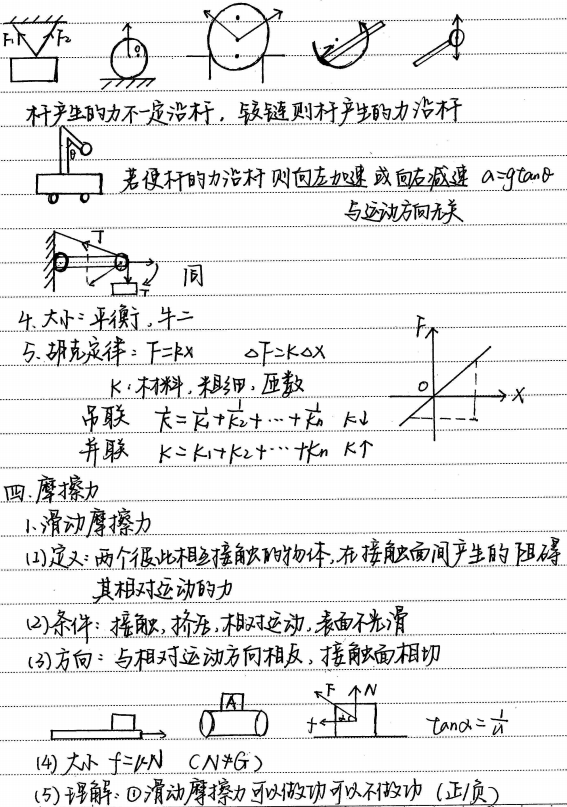 F₁ F₂
θ
杆产生的力不一定沿杆，铰链则杆产生的力沿杆
θ
若使杆的力沿杆则向左加速或向右减速 a=gtanθ
与运动方向无关
T
T
间
4.大小:平衡,牛二
F
5.胡克定律:F=kx △F=K△X
O X
K:材料,粗细,匝数
串联 1/K=1/K₁+1/K₂+…+1/Kn K↓
并联 K=K₁+K₂+…+Kn K↑
四.摩擦力
1.滑动摩擦力
(1)定义:两个彼此相互接触的物体,在接触面间产生的阻碍
其相对运动的力
(2)条件:接触,挤压,相对运动,表面不光滑
(3)方向:与相对运动方向相反,接触面相切
A F N f α tanα=1/μ
(4)大小 f=μN (N≠G)
(5)理解:①滑动摩擦力可以做功可以不做功(正/负)